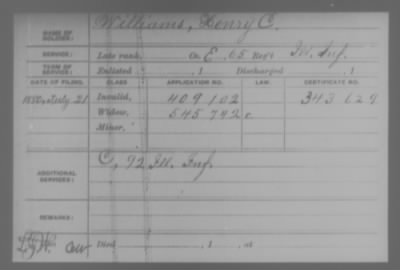 NAME OF SOLDIER: Williams, Henry C.
SERVICE: Late rank, Co. E, 65 Reg't Ill. Inf.
TERM OF SERVICE: Enlisted , 1 Discharged , 1
DATE OF FILING. CLASS. APPLICATION NO. LAW. CERTIFICATE NO.
21 Invalid, 409 102 343 629
Widow, 545 742
Minor,
ADDITIONAL SERVICES: C, 92 Ill. Inf.
REMARKS:
Died , 1 , at